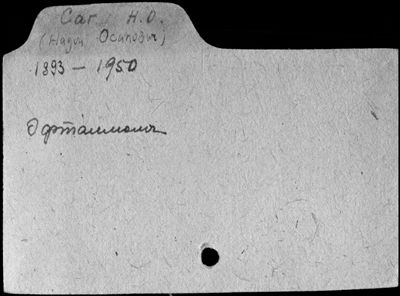 Саг Н.О.
(Наум Осипович)
1893 — 1950
Офтальмологъ